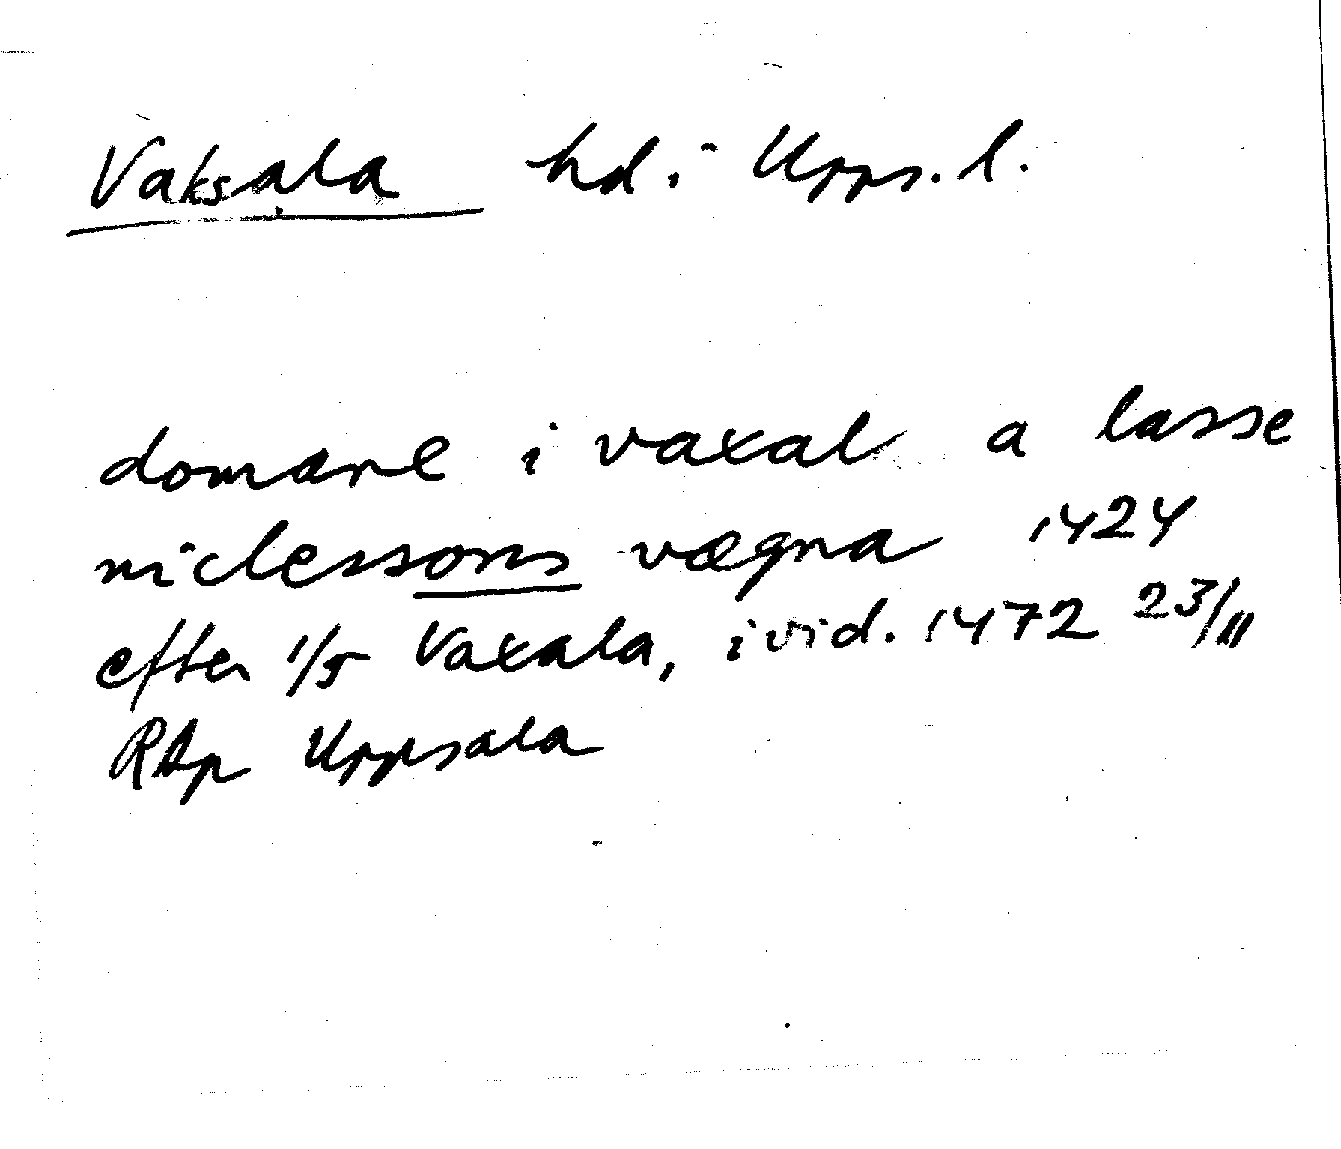 Vaksala hd. Upps. l.
domare i vaxal a lasse
niclessons vægna 1424
efter 1/5 Vaxala, i vid. 1472 23/11
RAp Uppsala